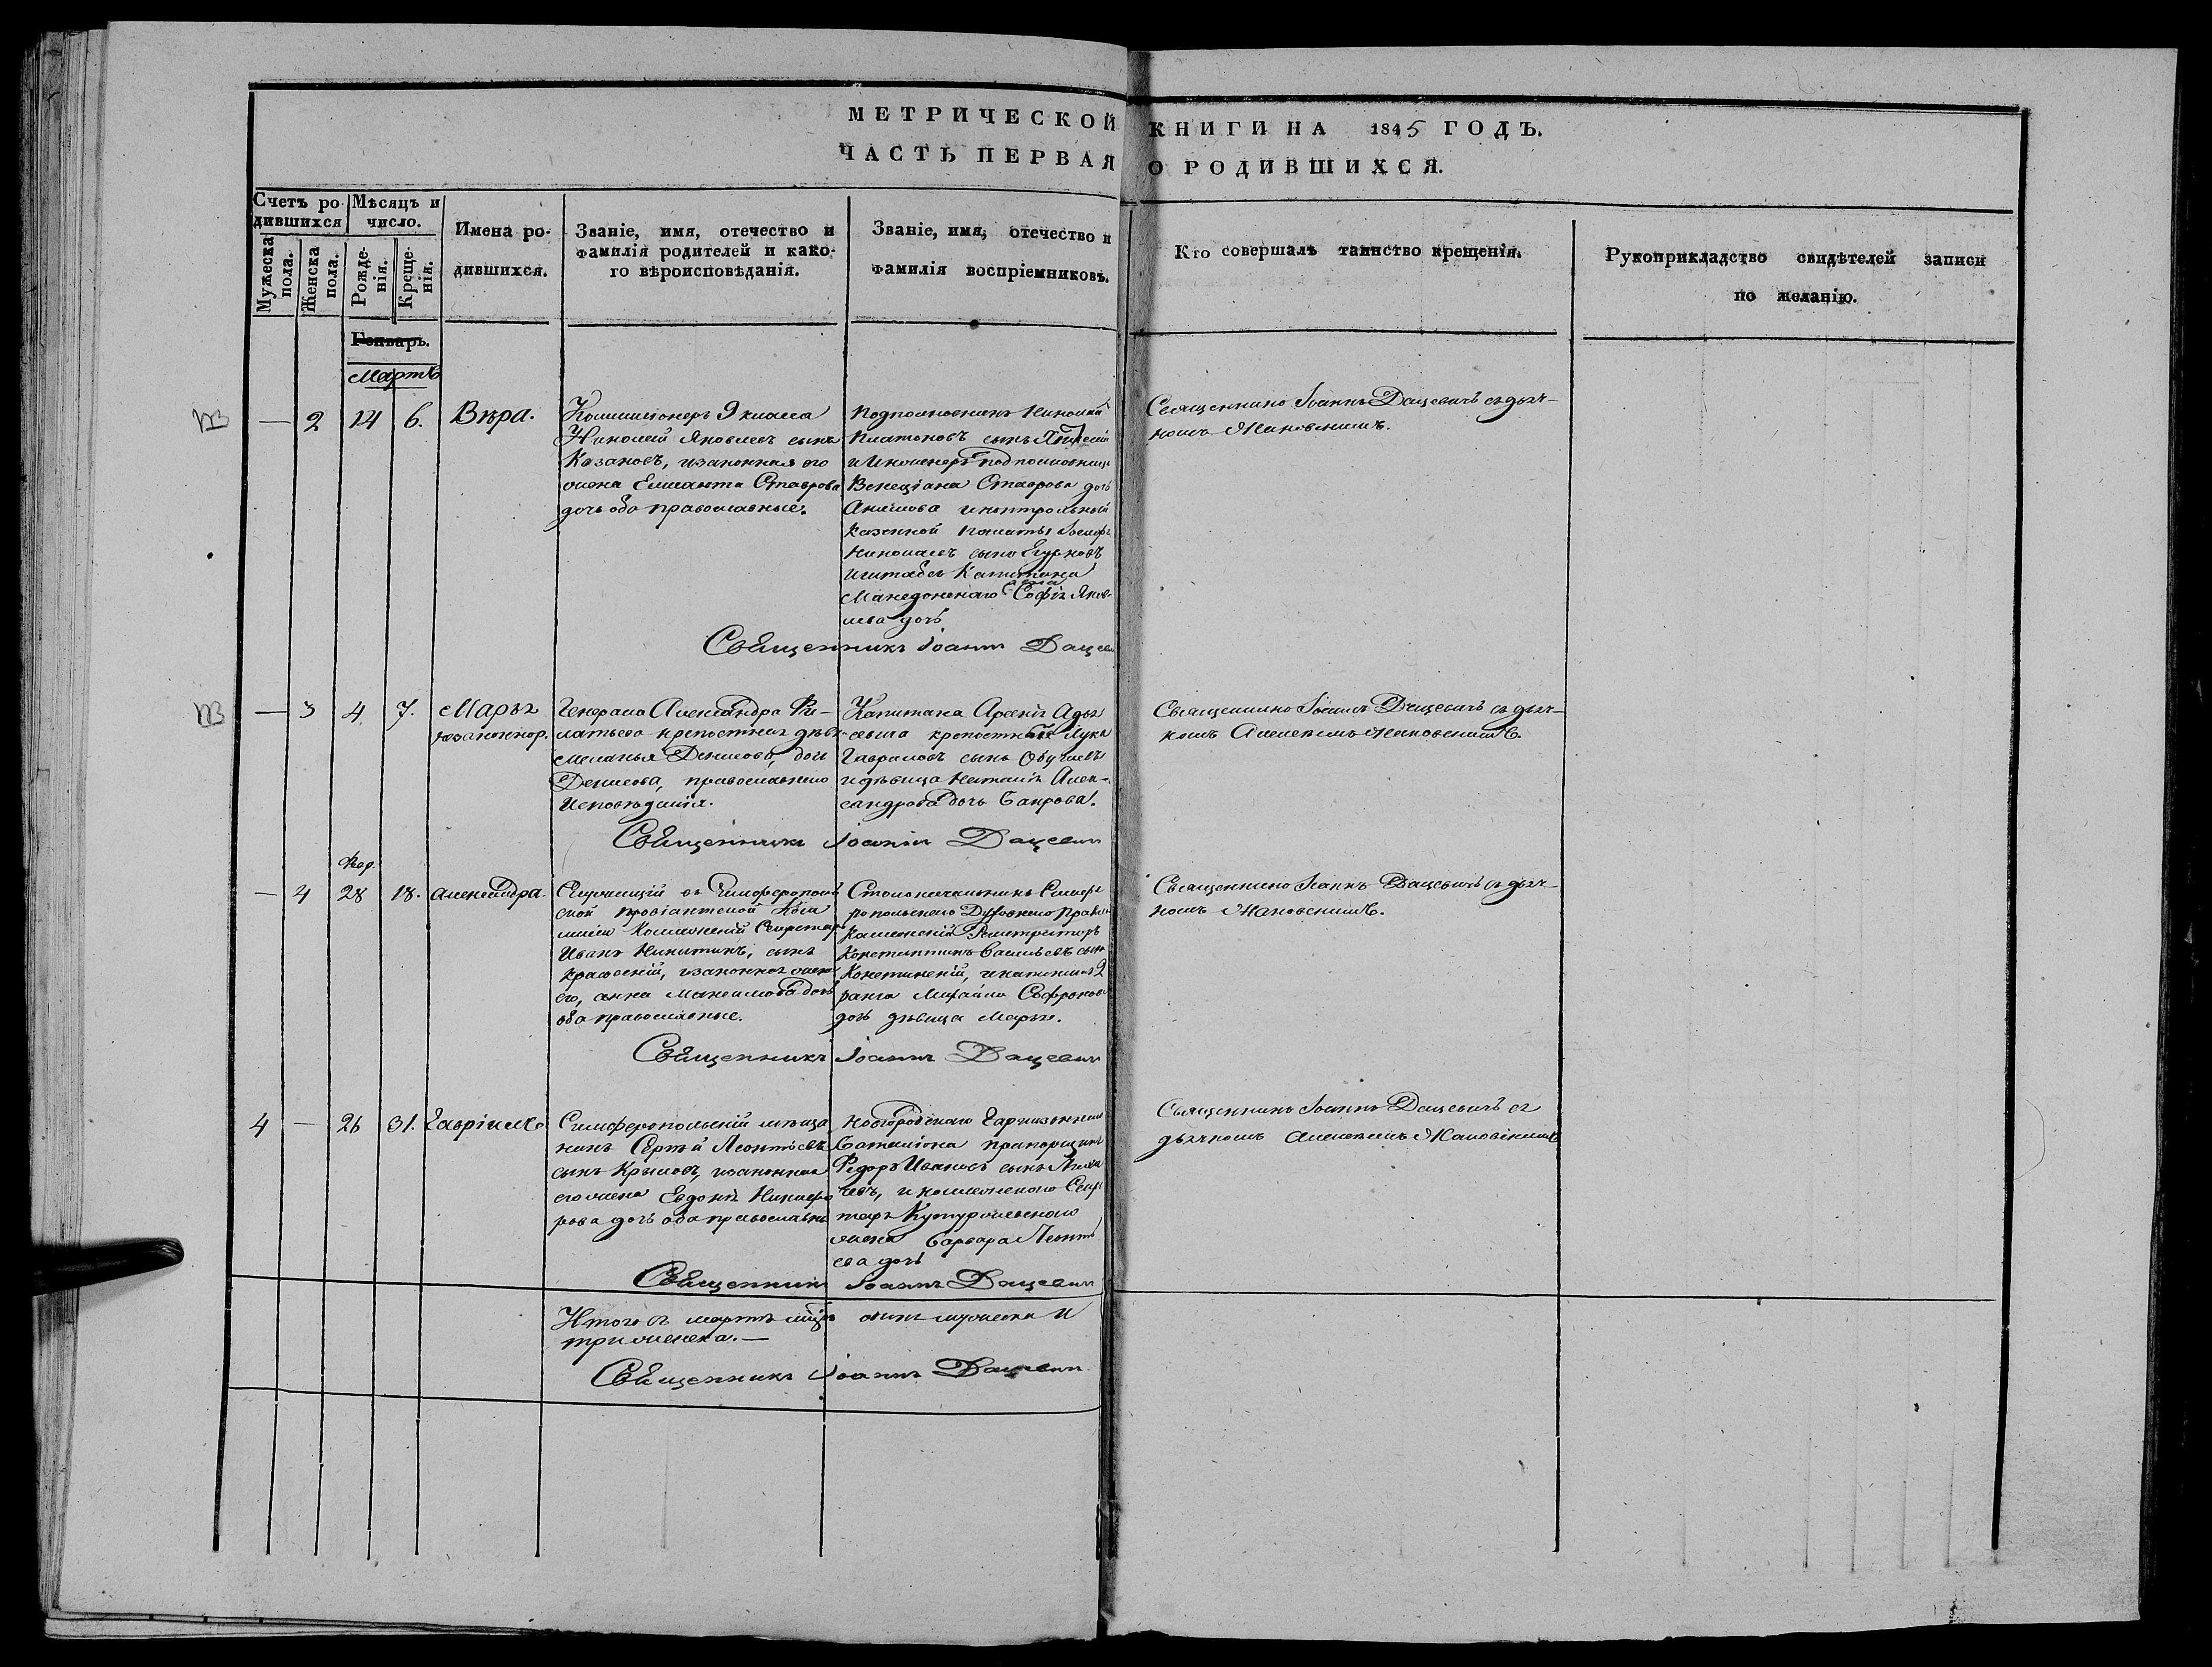 МЕТРИЧЕСКОЙ КНИГИ НА 1845 ГОДЪ.
ЧАСТЬ ПЕРВАЯ О РОДИВШИХСЯ.
Счетъ ро-
дившихся
Мужеска пола.
Женска пола.
Мѣсяцъ и
число.
Рожде-
нія.
Креще-
нія.
Имена ро-
дившихся.
Званіе, имя, отечество и
фамилія родителей и како-
го вѣроисповѣданія.
Званіе, имя, отечество и
фамилія воспріемниковъ.
Кто совершалъ таинство крещенія.
Рукоприкладство свидѣтелей записи
по желанію.
Генварь.
Мартъ
— 2 14 6. Вѣра.
Коммисіонеръ 9 класса
Николай Яковлевъ сынъ
Казановъ, изаконная его
жена Елисавта Ставрова
дочь оба православные.
Подполковникъ Николай
Платоновъ сынъ
и Инженеръ подполковница
Венеціана Ставрова дочь
Анисова иконтрольный
Казенной полаты Іосифъ
Николаевъ сынъ
иштабсъ Капитана
Македонскаго жена Софія Яков-
лева дочь
Священникъ Іоаннъ Дацевичъ съ дьяч-
комъ Жановскимъ.
Священникъ Іоаннъ Дацеви
— 3 4 7. Марья
незаконнор.
Генерала Александра Фи-
латьева крепостная дѣвк
Меланья Денисова дочь
Денисова, православнаго
Исповѣданія.
Капитана Арсенія
крепостный Лука
Гавриловъ сынъ
и дѣвица Наталія Алек-
сандрова дочь Бакрова.
Священникъ Іоаннъ Дацевичъ съ дьяч-
комъ Алексѣемъ Жановскимъ.
Священникъ Іоаннъ Дацевич
Фев.
— 4 28 18. Александра.
Служащій въ Симферополь
ской провіантской Ком
мисіи Коллежскій Секретарь
Иванъ Никитинъ, сынъ
изаконная жена
его, анна Максимова дочь
оба православные.
Столоначальникъ Симфе
ропольскаго Духовнаго Правле
Коллежскій Регистраторъ
Константинъ Васильевъ сынъ
2
ранга Михайла Софронова
дочь дѣвица Марья.
Священникъ Іоаннъ Дацевичъ съ дьяч-
комъ Жановскимъ.
Священникъ Іоаннъ Дацевич
4 — 26 31. Гавріилъ
Симферопольскій мѣща
нинъ Сергѣй Леонтьевъ
сынъ Крыловъ, изаконная
его жена Евдокія Никифо
рова дочь оба православны
Новгородскаго Гарнизоннаго
Баталіона прапорщикъ
Федоръ Ивановъ сынъ
и коллежскаго Секре
таря
жена Варвара Леонть
ева дочь
Священникъ Іоаннъ Дацевичъ съ
дьячкомъ Алексѣемъ Жановскимъ
Священникъ Іоаннъ Дацевич
Итого въ мартѣ мцѣ одинъ мужеска и
три женска.—
Священникъ Іоаннъ Дацевич